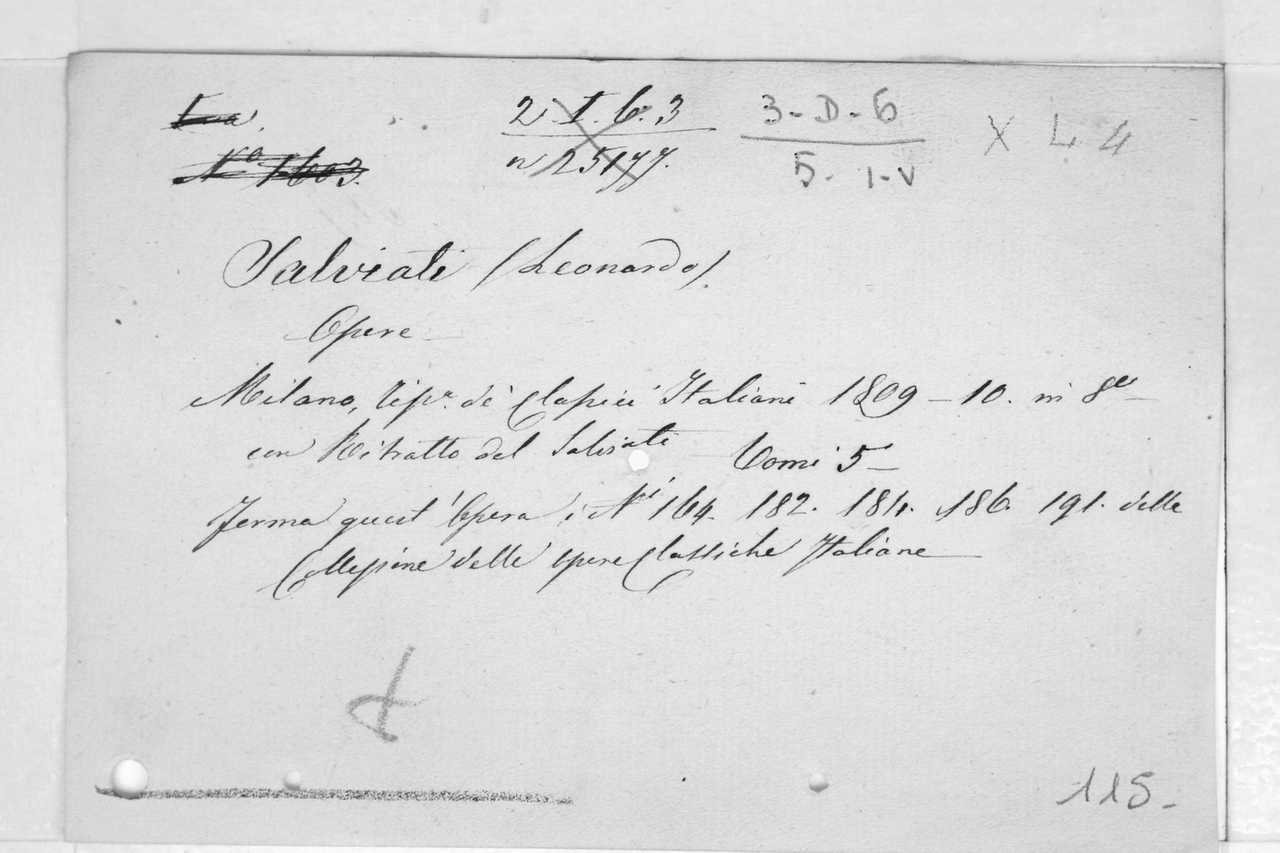 No 1603.
2. I. 6. 3
n 25177.
3-D-6
5. 1-V
X L 4
Salviati (Leonardo).
Opere
Milano, Tipa. de' Classici Italiani 1809-10. in 8o
con Ritratto del Salviati Tomi 5-
Forma quest' Opera i Ni 164. 182. 184. 186. 191. della
Collezione delle opere Classiche Italiane
115-